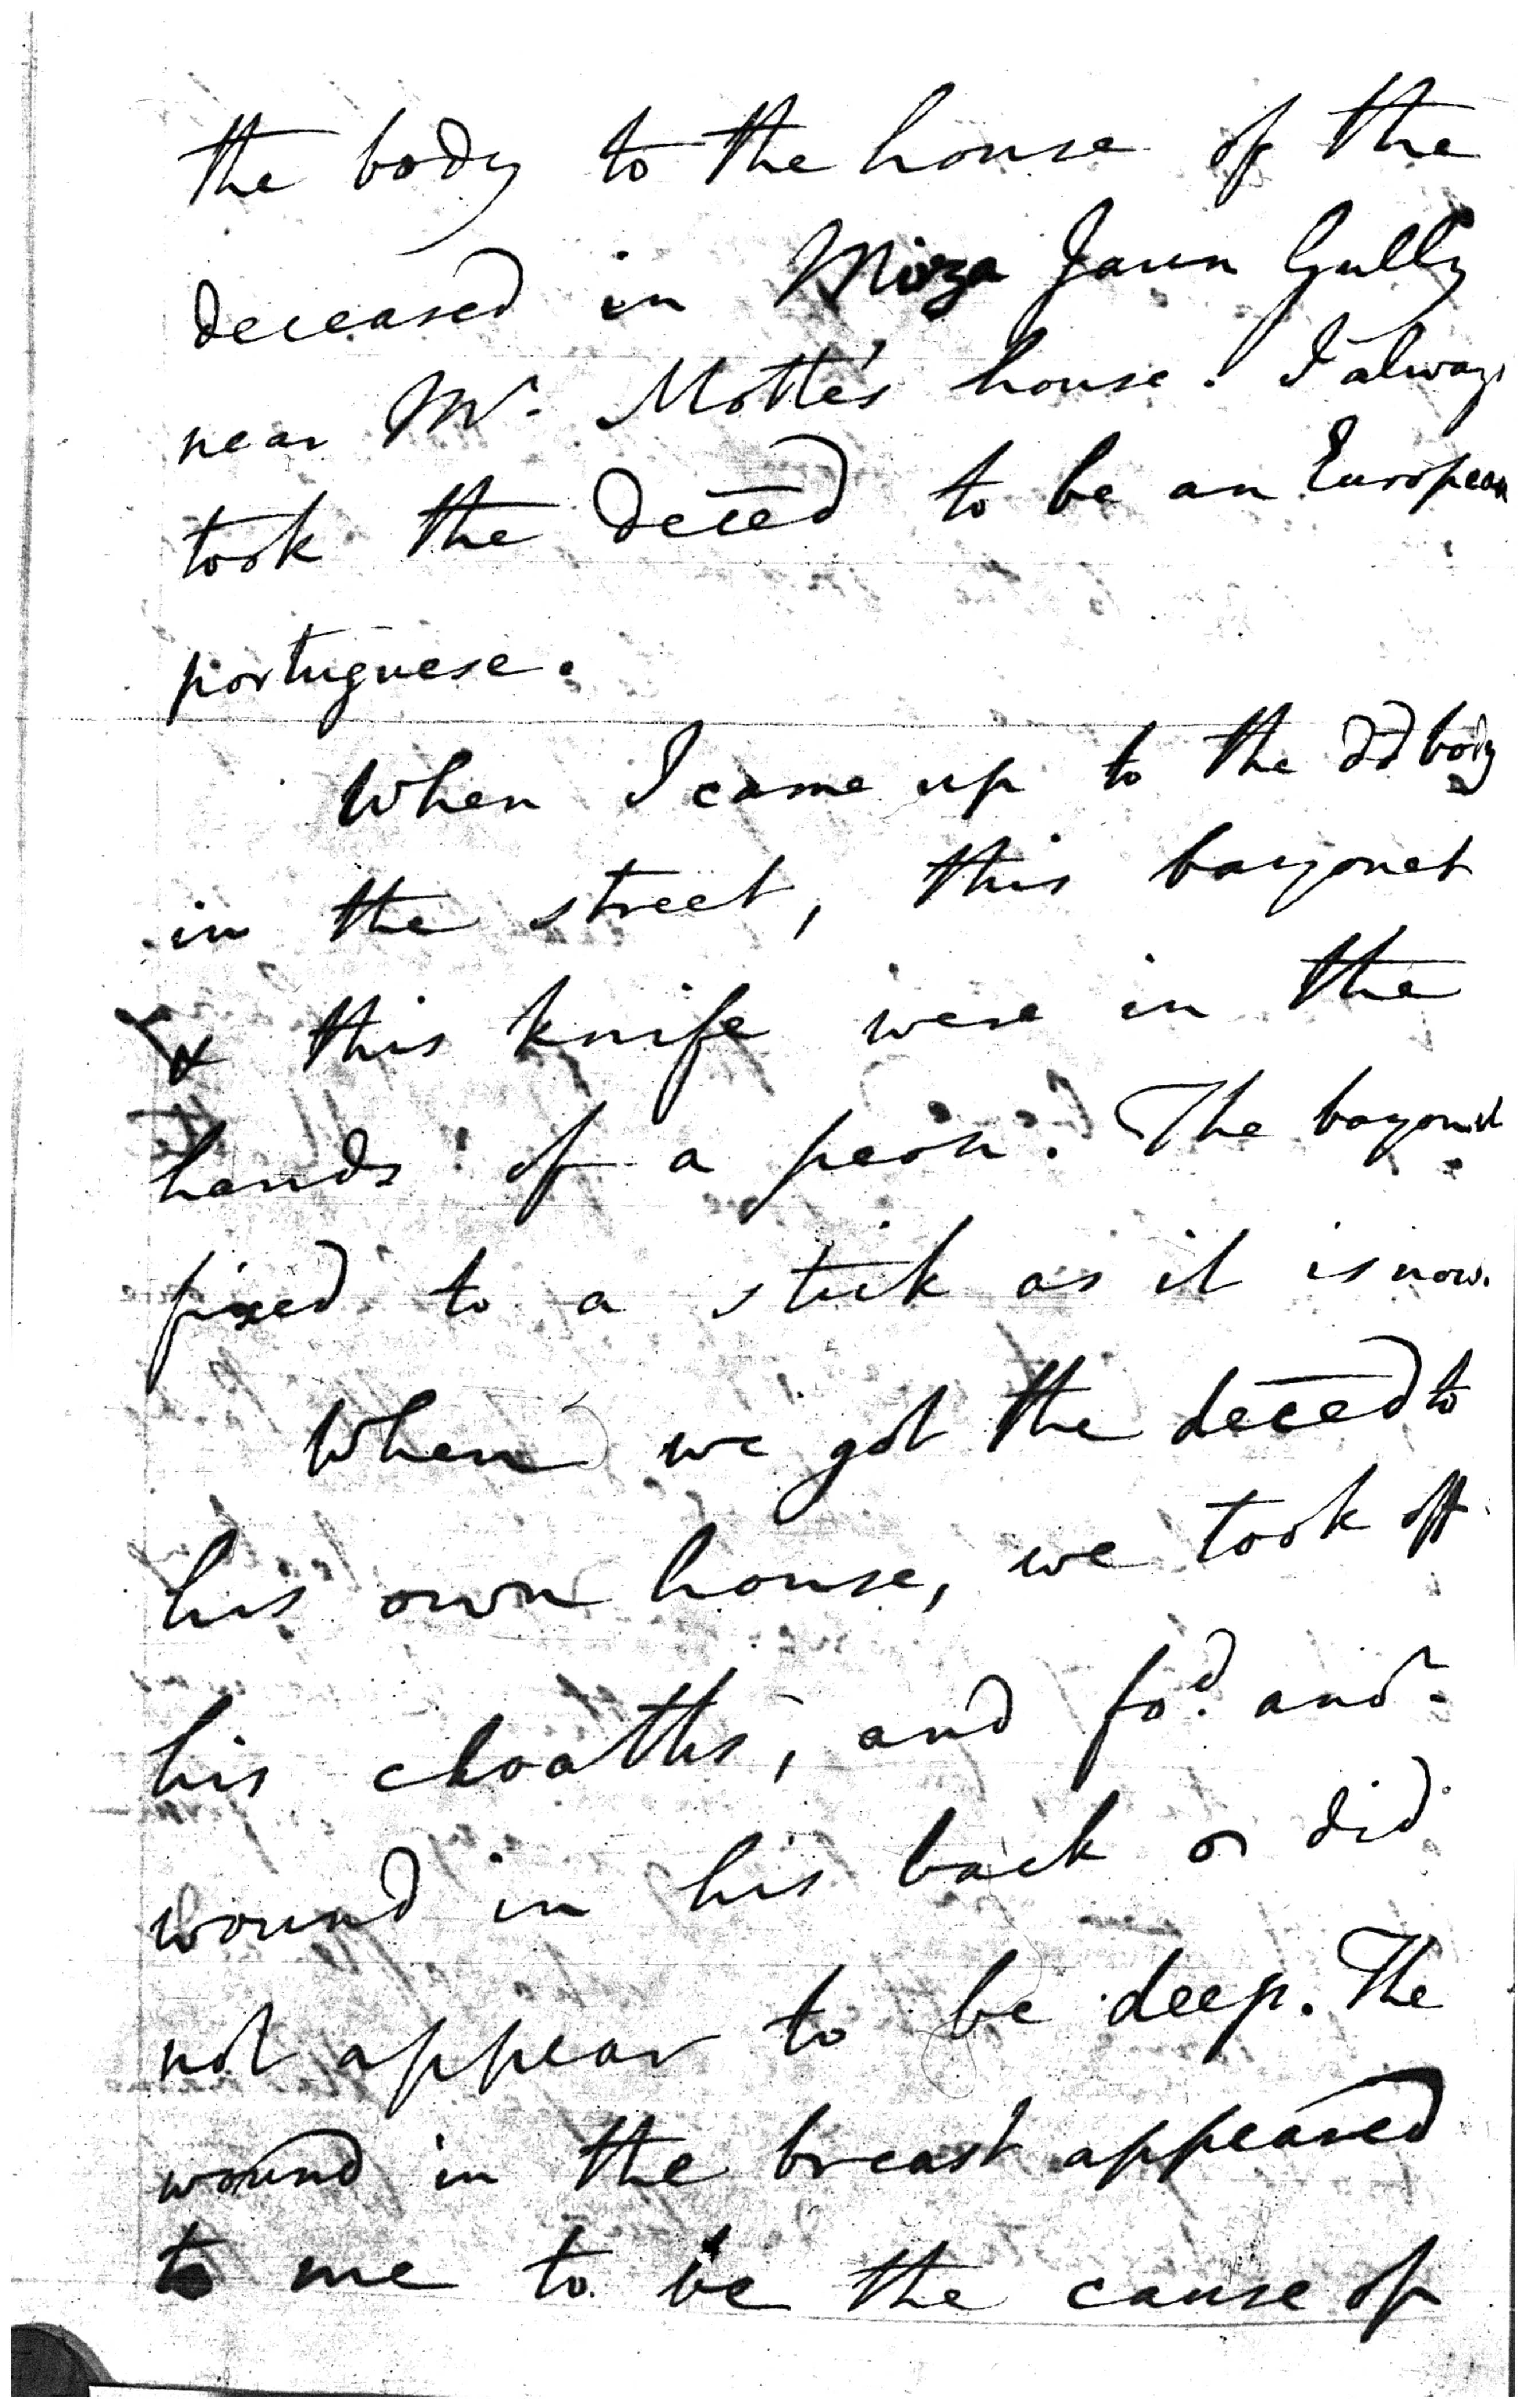 the body to the house of the
deceased in Mirza Jaun Gully
near Mr. Motte's house. I always
took the deced to be an European
portuguese.
When I came up to the dd body
in the street, this bayonet
& this knife were in the
hands of a peon. The bayonet
fixed to a stick as it is now.
When we got the deced to
his own house, we took off
his cloaths, and fod. anor.
wound in his back or did
not appear to be deep. The
wound in the breast appeared
to me to be the cause of